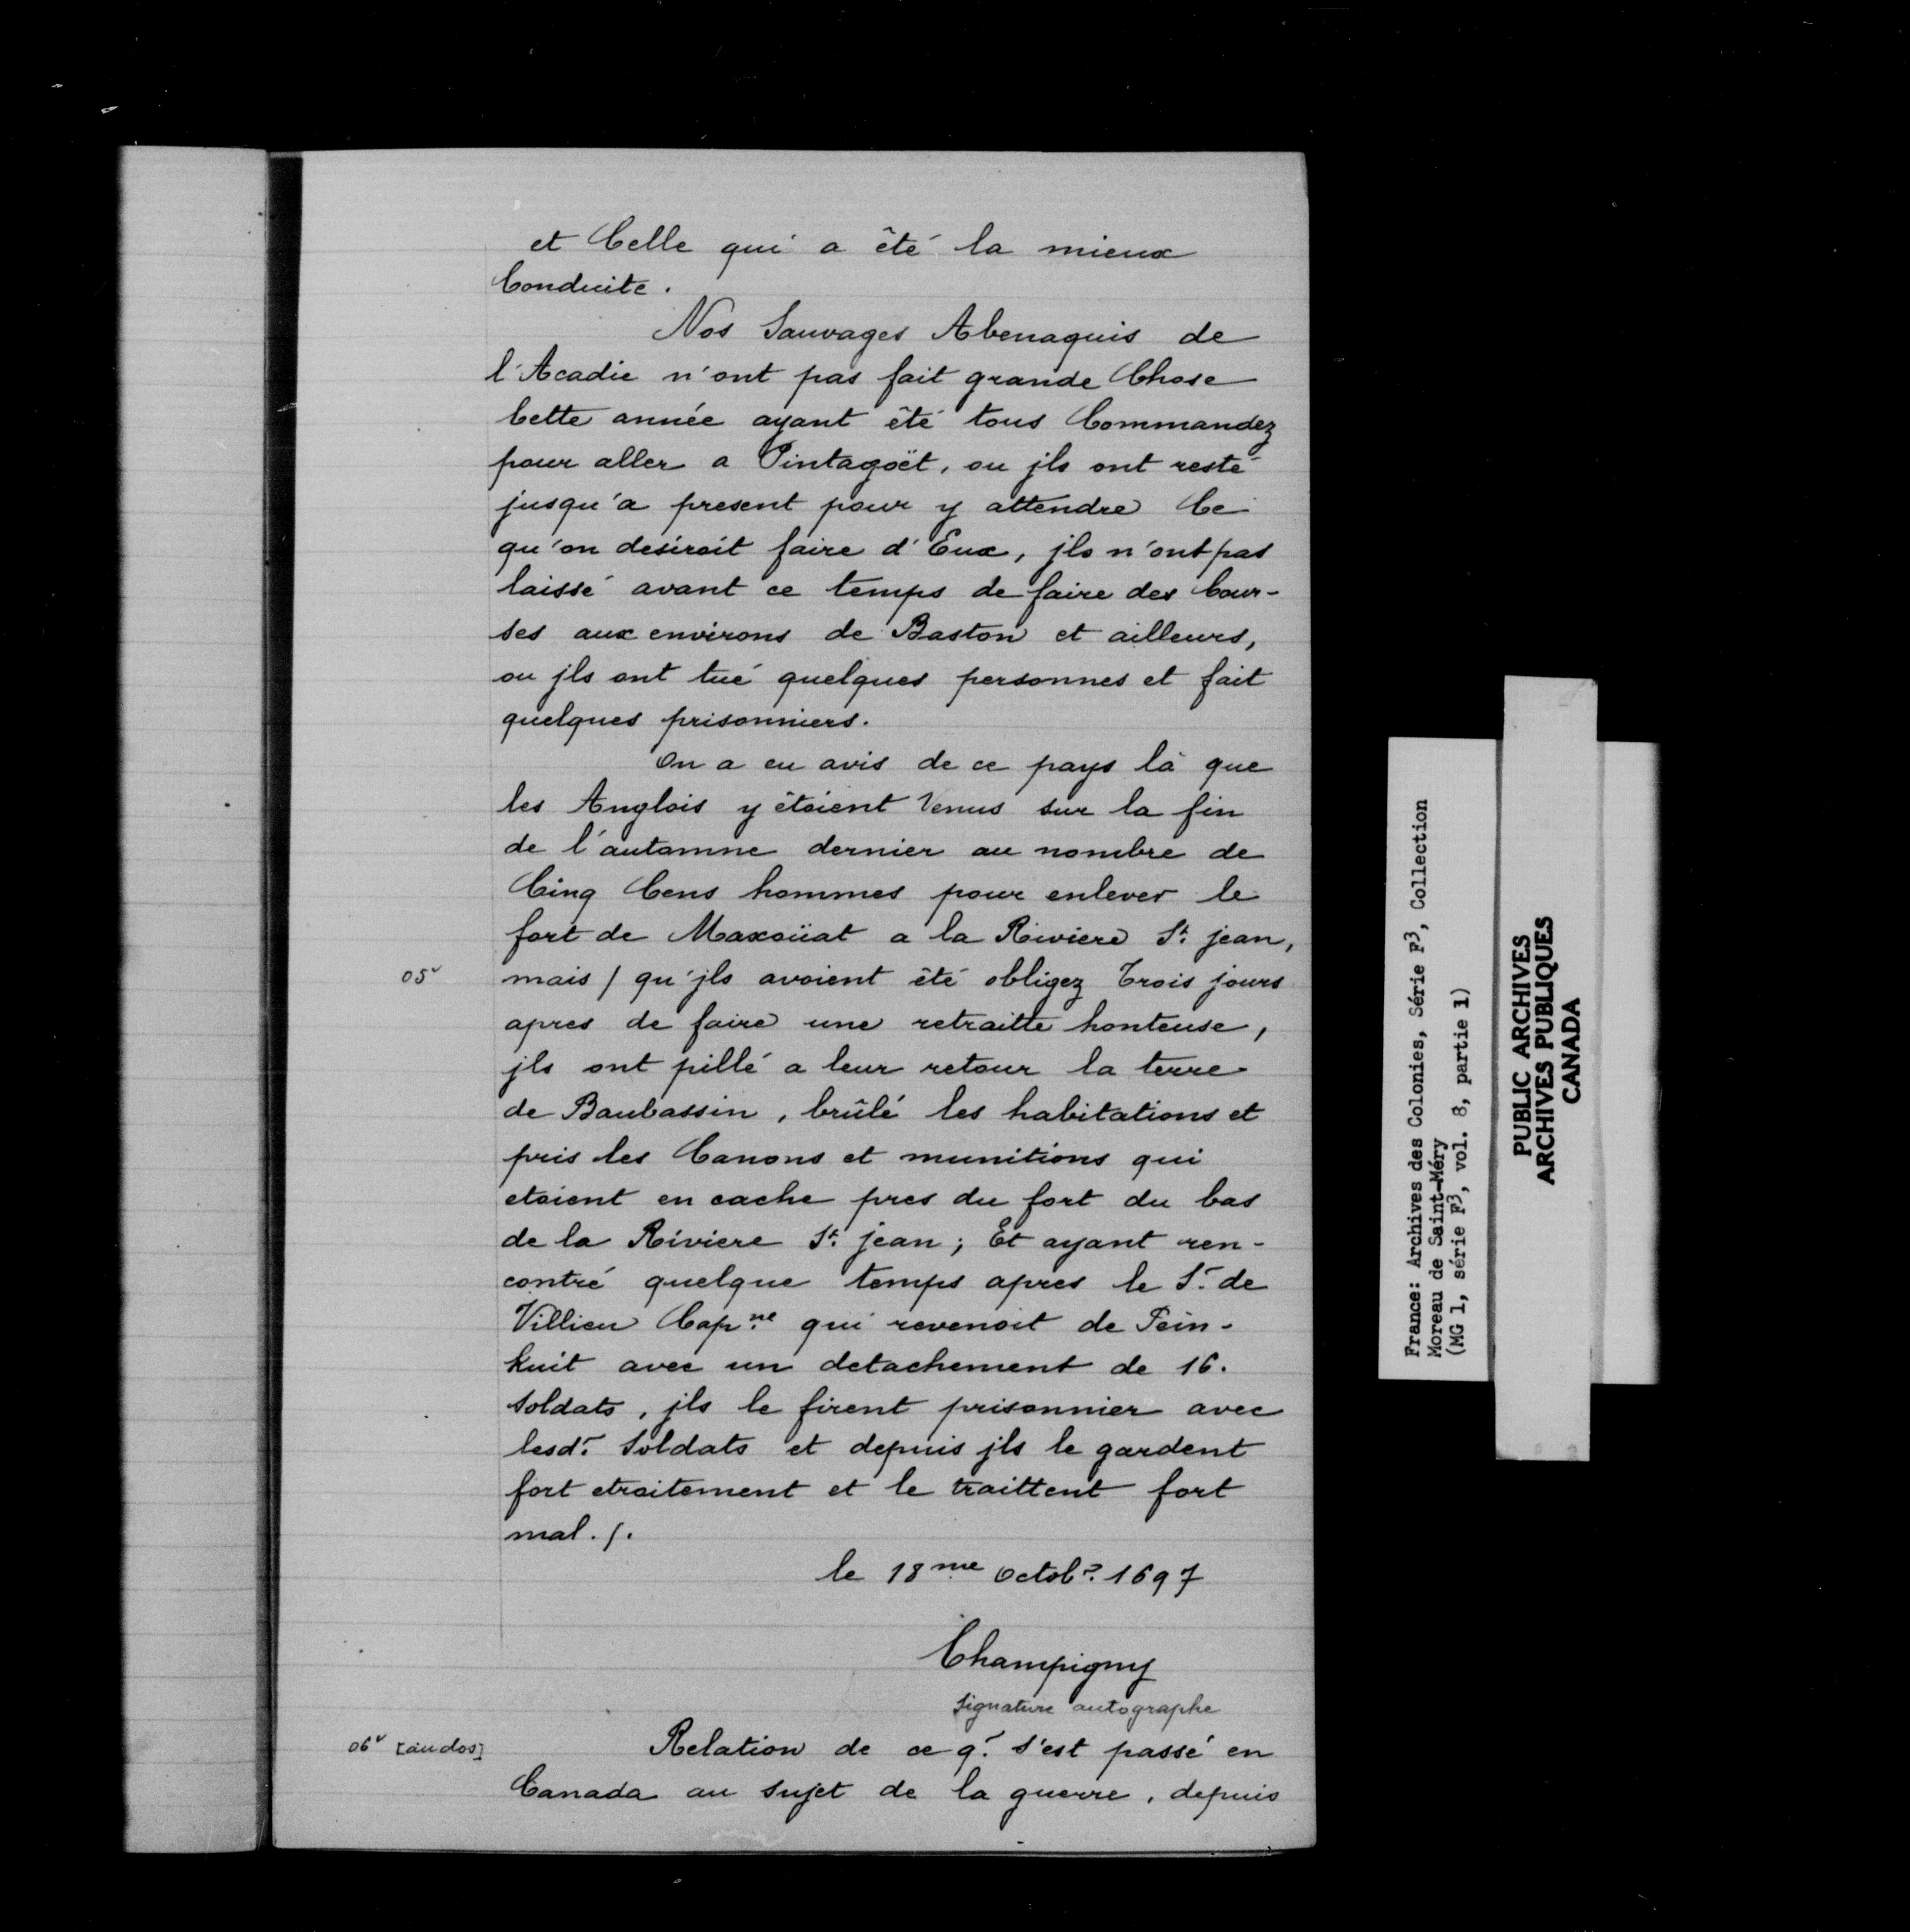 et Celle qui a été la mieux
Conduite.
Nos Sauvages Abenaquis de
l'Acadie n'ont pas fait grande Chose
Cette année ayant été tous Commandez
pour aller a Pintagoët, ou jls ont resté
jusqu'a present pour y attendre Ce
qu'on desiroit faire d'Eux, jls n'ont pas
laissé avant ce temps de faire des Cour-
ses aux environs de Baston et ailleurs,
ou jls ont tué quelques personnes et fait
quelques prisonniers.
On a eu avis de ce pays là que
les Anglois y étoient Venus sur la fin
de l'automne dernier au nombre de
Cinq Cens hommes pour enlever le
fort de Maxoüat a la Riviere St. jean,
05v mais / qu'jls avoient été obligez Trois jours
apres de faire une retraitte honteuse,
jls ont pillé a leur retour la terre
de Baubassin, brûlé les habitations et
pris les Canons et munitions qui
etoient en cache pres du fort du bas
de la Riviere St. jean; Et ayant ren-
contré quelque temps apres le Sr. de
Villieu Capne. qui revenoit de Pein-
kuit avec un detachement de 16.
Soldats, jls le firent prisonnier avec
lesd. Soldats et depuis jls le gardent
fort etroitement et le traittent fort
mal./.
le 18me octob. 1697
Champigny
Signature autographe
06v [au dos] Relation de ce q. s'est passé en
Canada au Sujet de la guerre, depuis
France: Archives des Colonies, Série F3, Collection
Moreau de Saint-Méry
(MG 1, série F3, vol. 8, partie 1)
PUBLIC ARCHIVES
ARCHIVES PUBLIQUES
CANADA